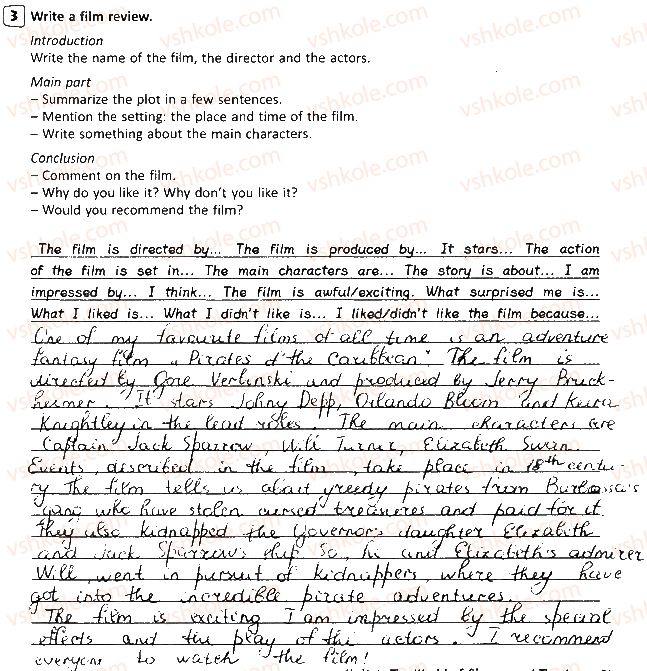 3 Write a film review.
Introduction
Write the name of the film, the director and the actors.
Main part
– Summarize the plot in a few sentences.
– Mention the setting: the place and time of the film.
– Write something about the main characters.
Conclusion
– Comment on the film.
– Why do you like it? Why don't you like it?
– Would you recommend the film?
The film is directed by... The film is produced by... It stars... The action
of the film is set in... The main characters are... The story is about... I am
impressed by... I think... The film is awful/exciting. What surprised me is...
What I liked is... What I didn't like is... I liked/didn't like the film because...
One of my favourite films of all time is an adventure
fantasy film „Pirates of the Caribbean" The film is
directed by Gore Verbinski and produced by Jerry Bruck-
heimer. It stars Johny Depp, Orlando Bloom and Keira
Knightley in the lead roles. The main characters are
Captain Jack Sparrow, Will Turner, Elizabeth Swan.
Events, described in the film, take place in 18th centu-
ry The film tells us about greedy pirates from Barbossa's
gang who have stolen cursed treasures and paid for it.
They also kidnapped the Governor's daughter Elizabeth
and Jack Sparrow's ship. So, he and Elizabeth's admirer
Will, went in pursuit of kidnappers, where they have
got into the incredible pirate adventures.
The film is exciting I am impressed by the special
effects and the play of the actors. I recommend
everyone to watch the film!
vshkole.com